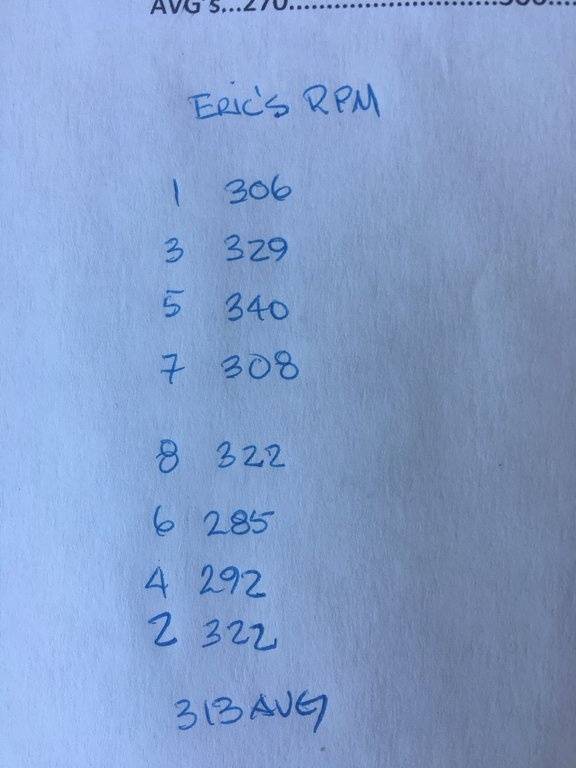 AVG's...270
Eric's RPM
1 306
3 329
5 340
7 308
8 322
6 285
4 292
2 322
313 AVG